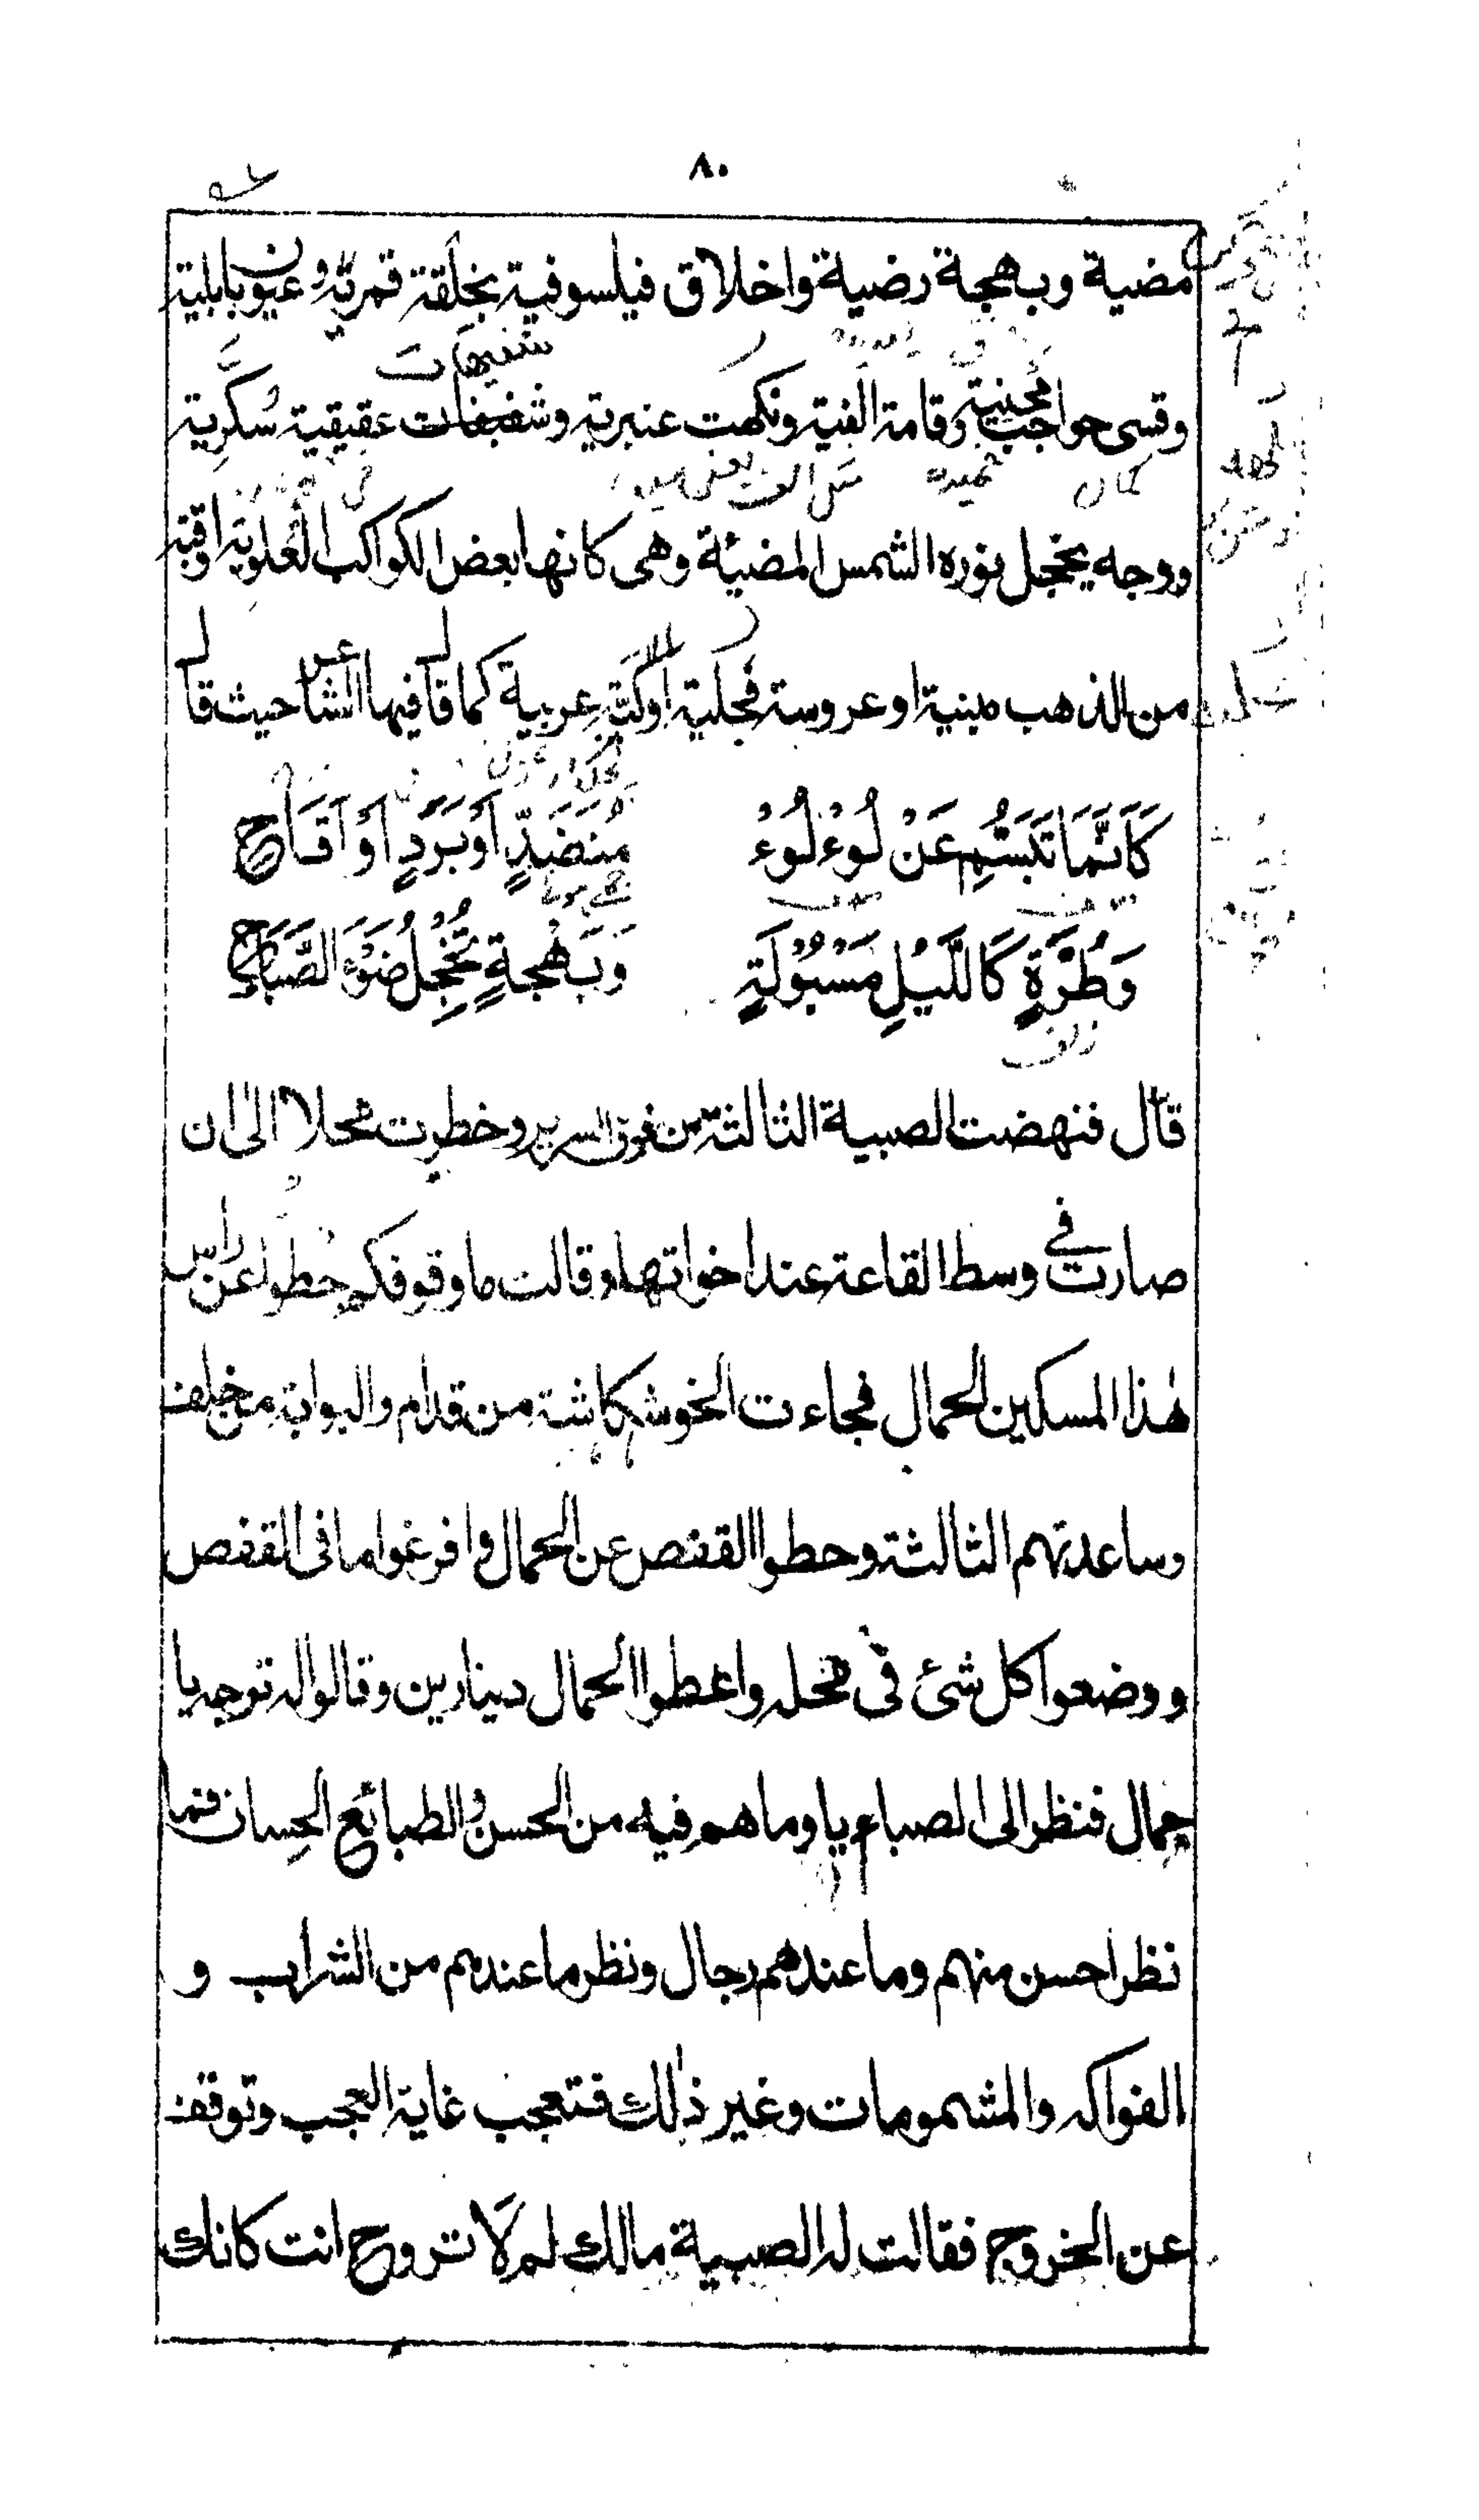 ٨٠
مضية وبهجة رضية واخلاق فيلسوفية بخلقة قمرية وعيون بابلية
شفيهات
وقسى حواجب محنية وقامة الفية ونكهت عنبرية وشفيفات عقيقية سكرية
ووجه يخجل نوره الشمس المضيئة وهى كانها بعض الكواكب العلوية اوقبة
من الذهب مبنية او عروسة مجلية او كبة عربية كما قال فيها الشاعر حيث قال
كَاَنَّمَا تَبَسَّمُ عَنْ لُوءْلُوءْ مُنَضَّدٍ اَوْ بَرَدٍ اَوْ اَقَاح
وَطُرَّةٍ كَاللَّيْلِ مَسْبُوْلَةٍ وَبَهْجَةٍ تُخْجِلُ ضَوْءَ الصَّبَاح
زلف
قال فنهضت الصبية الثالثة من فوق السرير وخطرت محلا الى ان
صارت فى وسط القاعة عند اخواتها وقالت ما وقوفكم حطوا عن راس
هٰذا المسكين الحمال فجاءت الخوشكاشة من قدام والبوابة من خلف
وساعدتهم الثالثة وحطوا القفص عن الحمال وافرغوا ما فى القفص
ووضعوا كل شئ فى محله واعطوا الحمال دينارين وقالوا له توجه يا
حمال فنظر الى الصبايا وما هم فيه من الحسن والطبائع الحسان فما
نظر احسن منهم وما عندهم رجال ونظر ما عندهم من الشراب و
الفواكه والمشمومات وغير ذٰلك فتعجب غاية العجب وتوقف
عن الخروج فقالت له الصبية مالك لم لا تروح انت كانك